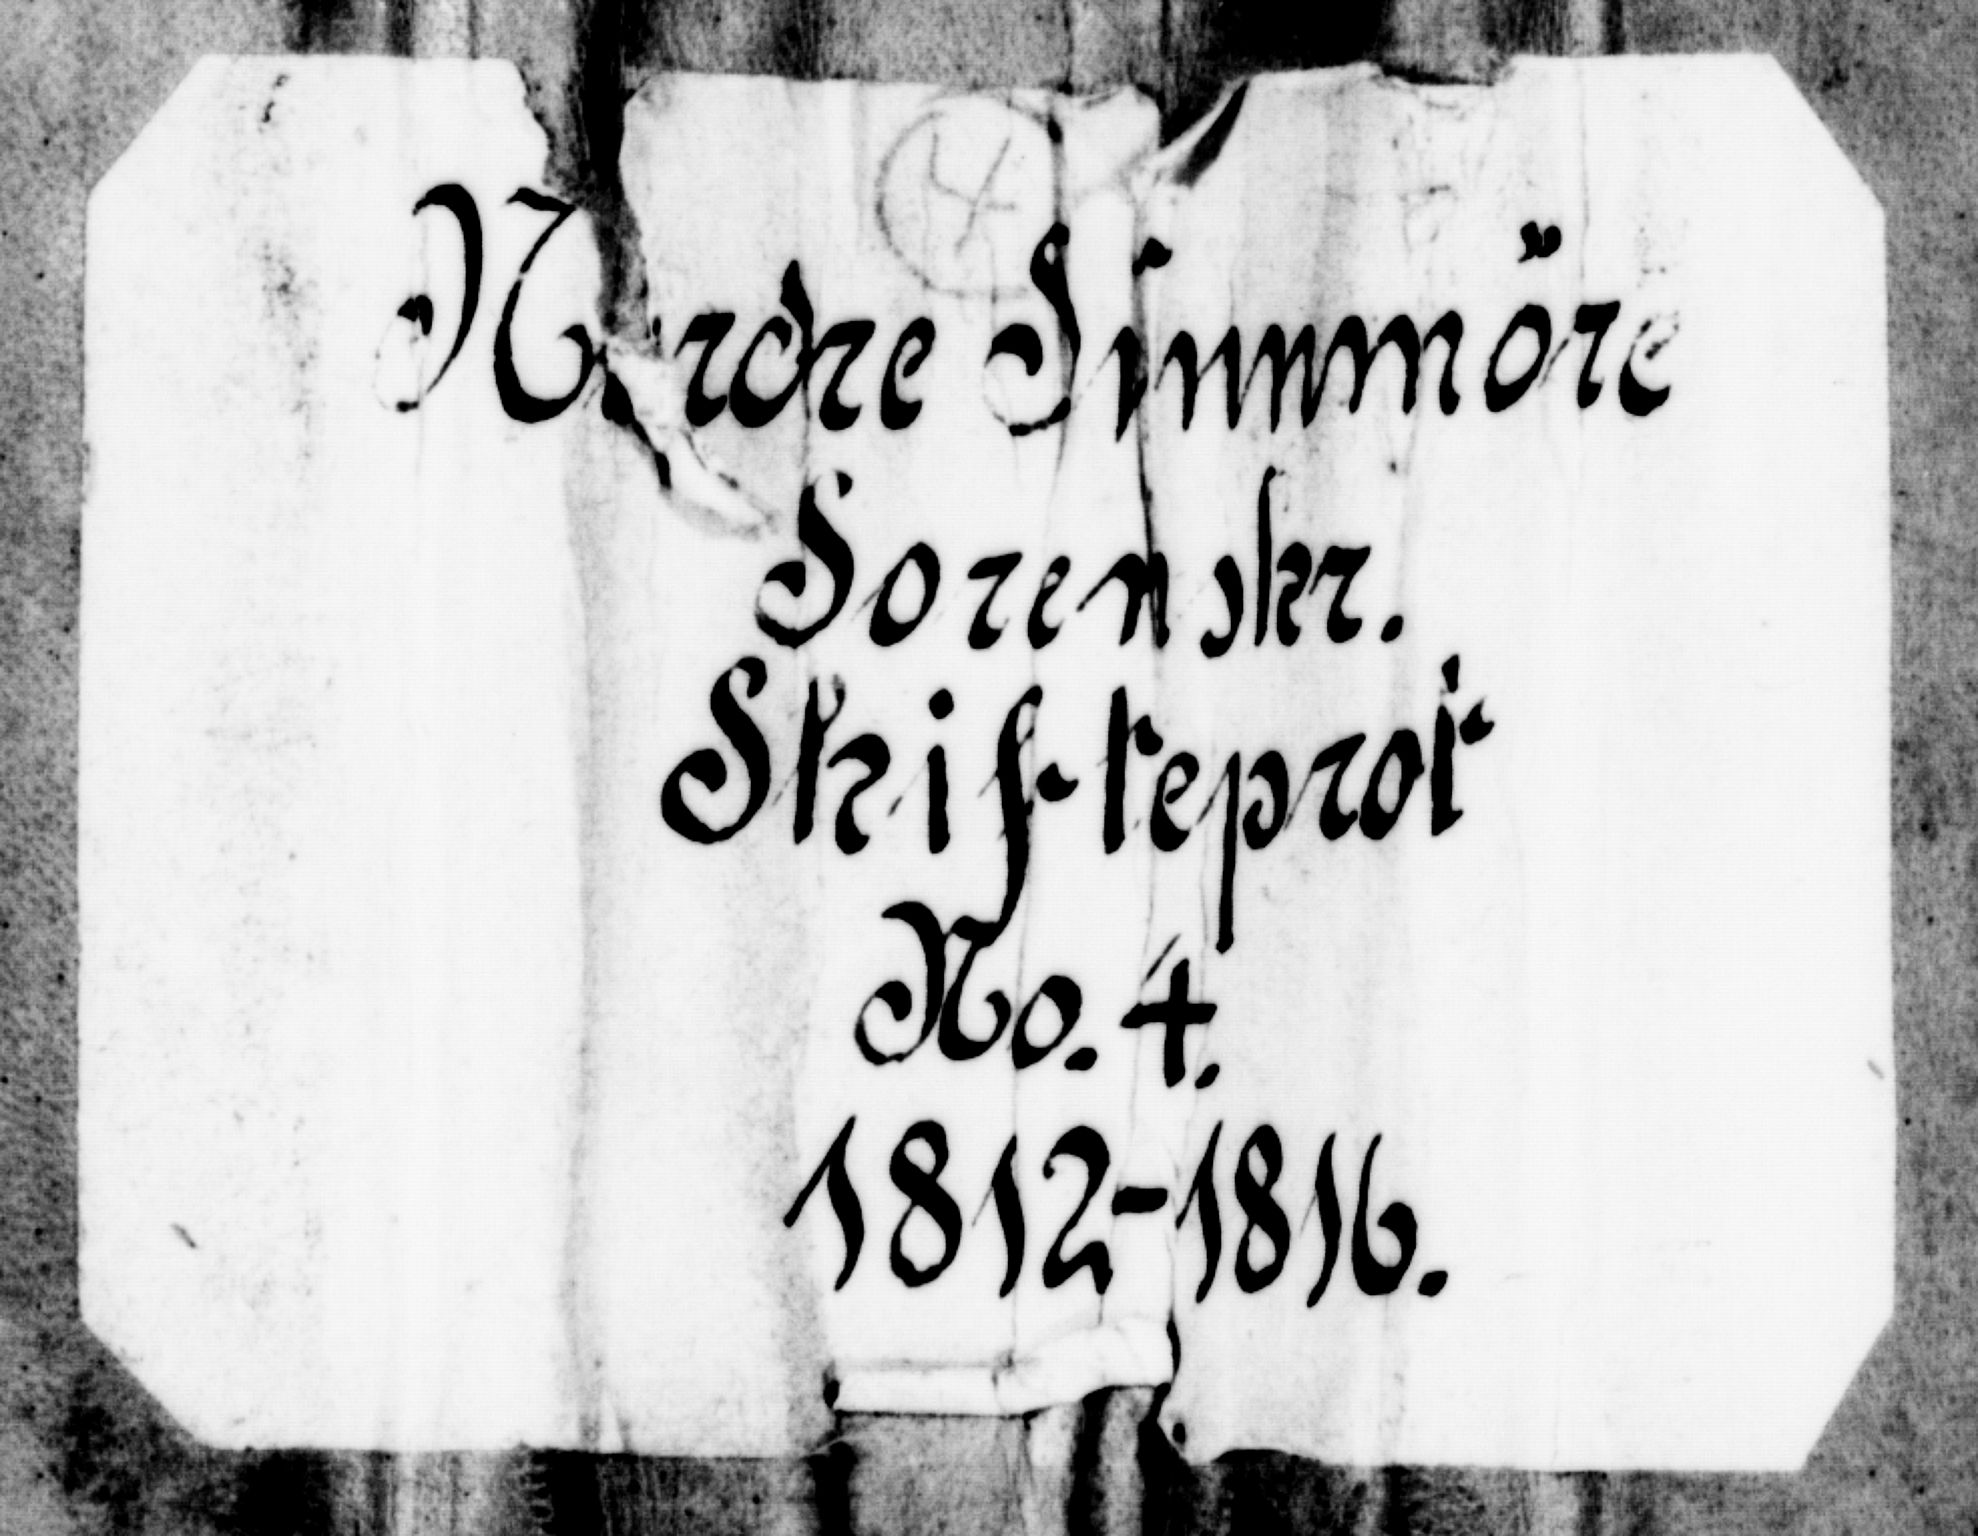 4
Nordre Sunnmöre
Sorenskr.
Skifteprot
No. 4.
1812-1816.